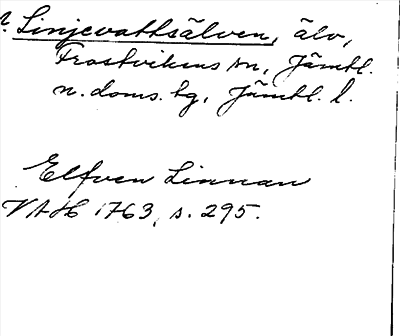 ? Linjevattsälven, älv,
Frostvikens sn, Jämtl.
n. doms. hg, Jämtl. l.
Elfven Linnan
VAH 1763, s. 295.